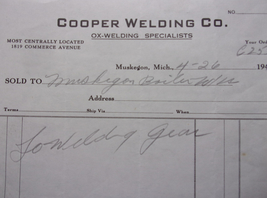 NO.
COOPER WELDING CO.
OX-WELDING SPECIALISTS
MOST CENTRALLY LOCATED
1819 COMMERCE AVENUE
Your Ord
Muskegon, Mich. 4-26 194
SOLD TO Muskegon Boiler Wks
Address
Terms Ship Via When
To Welding Gear